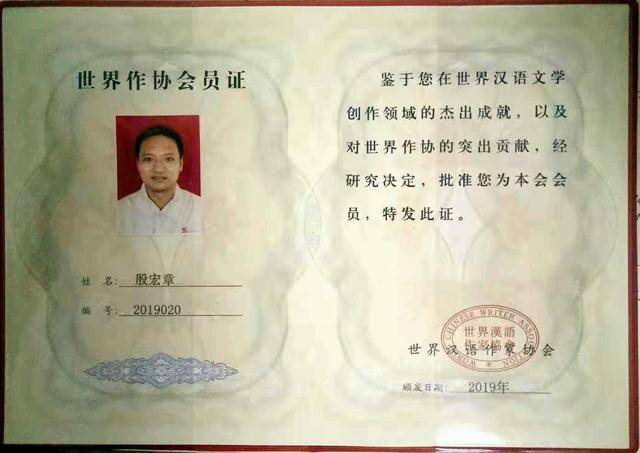 世界作协会员证
姓名: 殷宏章
编号: 2019020
鉴于您在世界汉语文学
创作领域的杰出成就，以及
对世界作协的突出贡献，经
研究决定，批准您为本会会
员，特发此证。
世界漢語
作家協會
世界汉语作家协会
颁发日期: 2019年